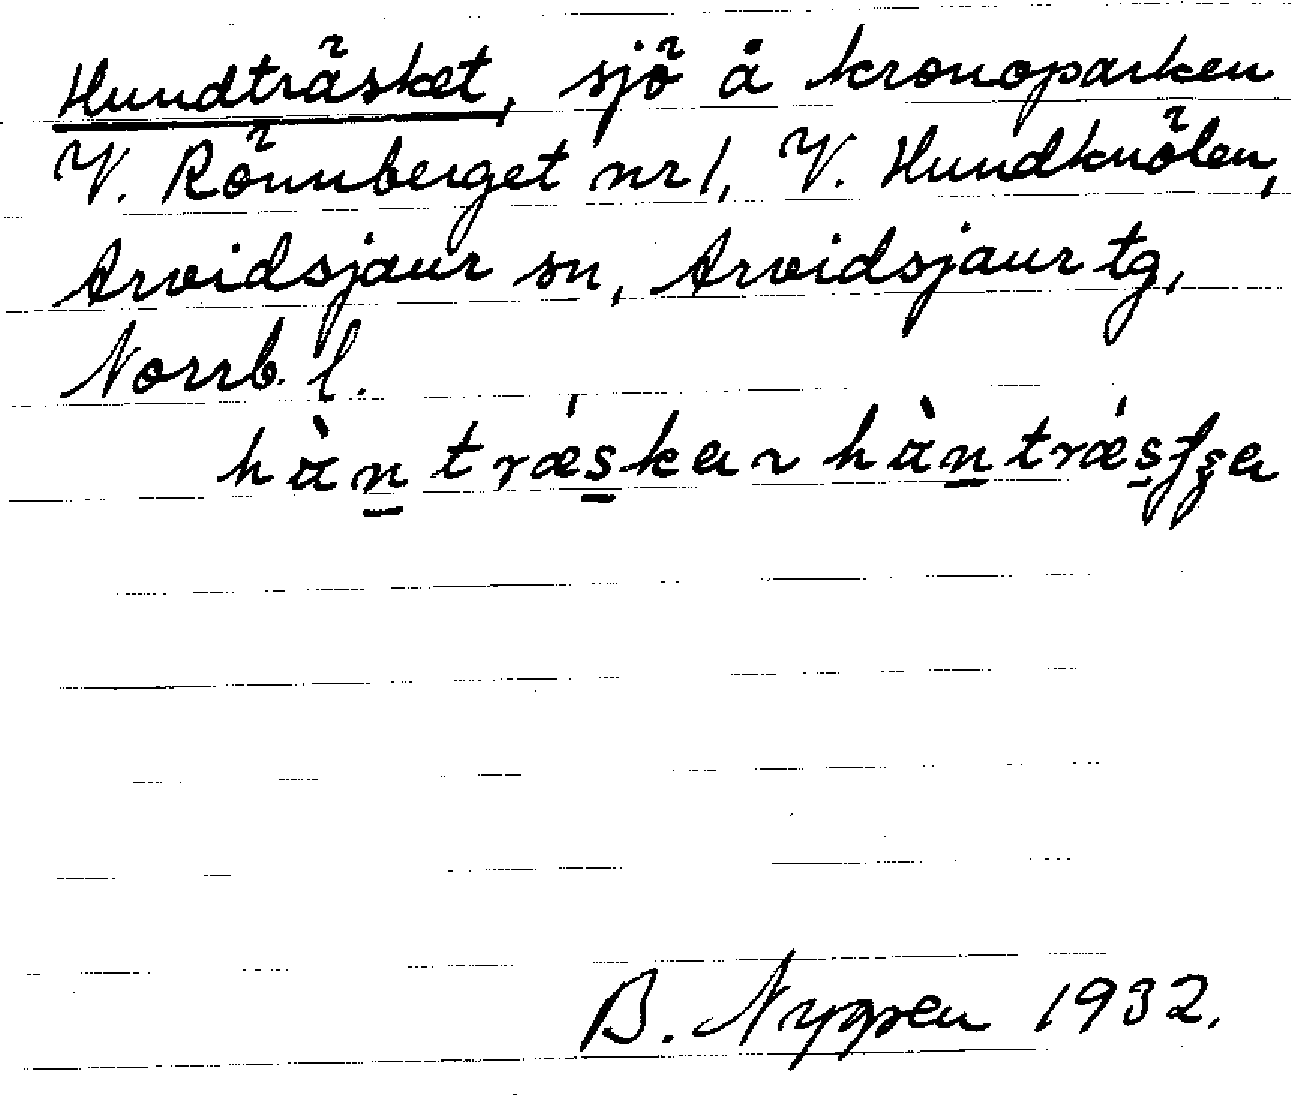 Hundträsket, sjö å kronoparken
V. Rönnberget nr 1, V. Hundknölen,
Arvidsjaur sn, Arvidsjaur tg,
Norrb. l.
B. Nygren 1932.